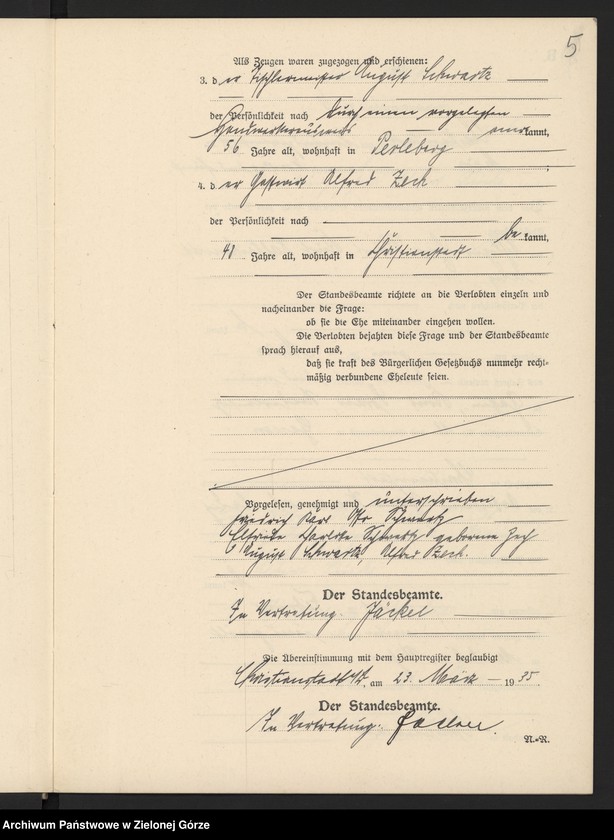 5
Als Zeugen waren zugezogen und erschienen:
3. der Tischlermeister August Schwartz
der Persönlichkeit nach durch einen vorgelegten
Handwerkerausweis anerkannt,
56 Jahre alt, wohnhaft in Perleberg
4. der Gastwirt Alfred Zech
der Persönlichkeit nach
bekannt,
41 Jahre alt, wohnhaft in Christianstadt
Der Standesbeamte richtete an die Verlobten einzeln und
nacheinander die Frage:
ob sie die Ehe miteinander eingehen wollen.
Die Verlobten bejahten diese Frage und der Standesbeamte
sprach hierauf aus,
daß sie kraft des Bürgerlichen Gesetzbuchs nunmehr recht-
mäßig verbundene Eheleute seien.
Vorgelesen, genehmigt und unterschrieben
Friedrich Karl Otto Schwartz
Elfriede Charlotte Schwartz geborene Zech
August Schwartz, Alfred Zech.
Der Standesbeamte.
In Vertretung. Jäckel
Die Übereinstimmung mit dem Hauptregister beglaubigt
Christianstadt, am 23. März 1935
Der Standesbeamte.
In Vertretung.
N.-R.
Archiwum Państwowe w Zielonej Górze